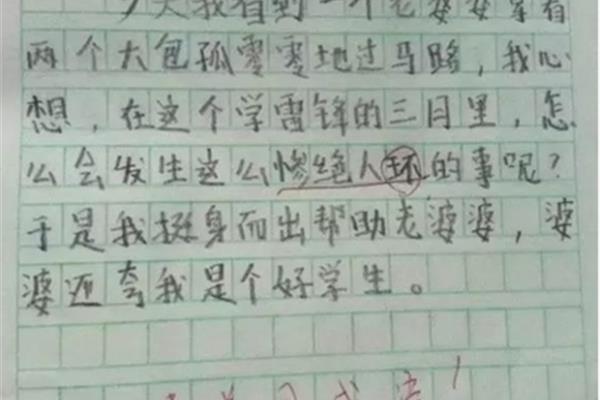 今天我看到一个老婆婆拿着
两个大包孤零零地过马路，我心
想，在这个学雷锋的三月里，怎
么会发生这么惨绝人环的事呢？
于是我挺身而出帮助老婆婆，婆
婆还夸我是个好学生。